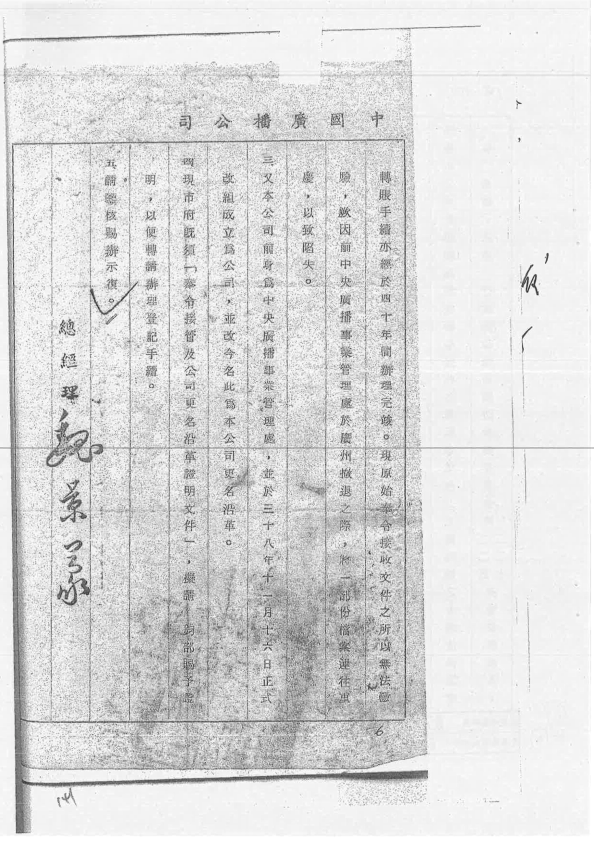 中國廣播公司
轉賬手續亦經於四十年間辦理完竣。現原始奉令接收文件之所以無法檢
驗，厥因前中央廣播事業管理處於廣州撤退之際，將一部份檔案運往重
慶，以致昭失。
三又本公司前身爲中央廣播事業管理處，並於三十八年十一月十六日正式
改組成立爲公司，並改今名此爲本公司更名沿革。
四現市府既須「奉令接管及公司更名沿革證明文件」，擬請 鈞部賜予證
明，以便轉請辦理登記手續。
五請鑒核賜辦示復。
總經理魏景蒙
6
141